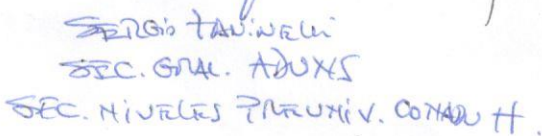 SERGIO ZANINELLI
SEC. GRAL. ADUNS
SEC. NIVELES PREUNIV. CONADU H.